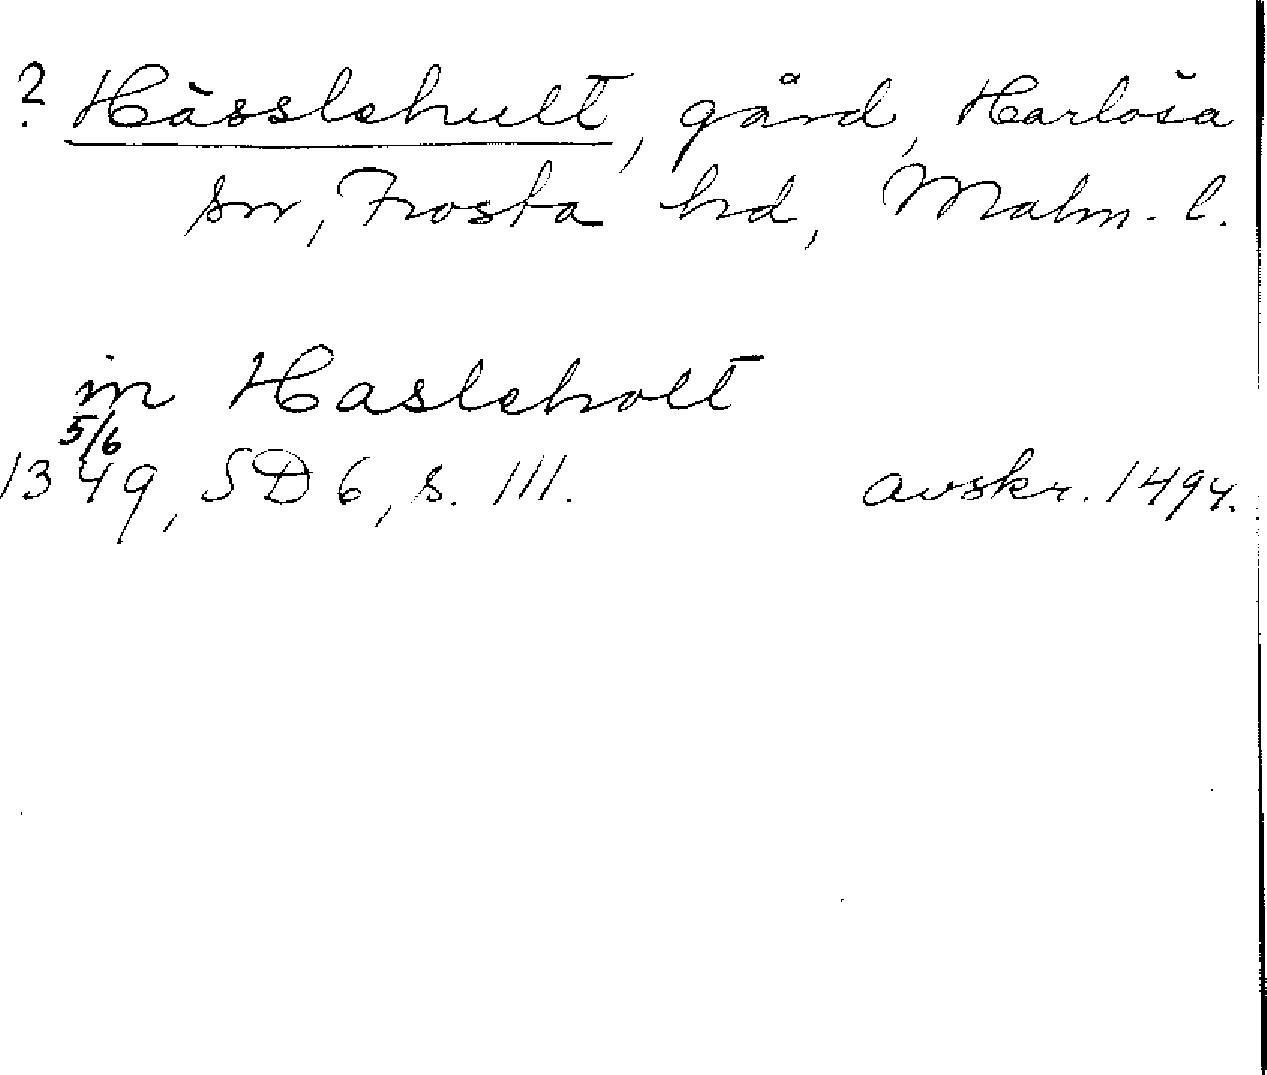 ? Hässlehult, gård, Harlösa
sn, Frosta hd, Malm. l.
in Hasleholt
5/6
1349, SD 6, s. 111.
avskr. 1494.